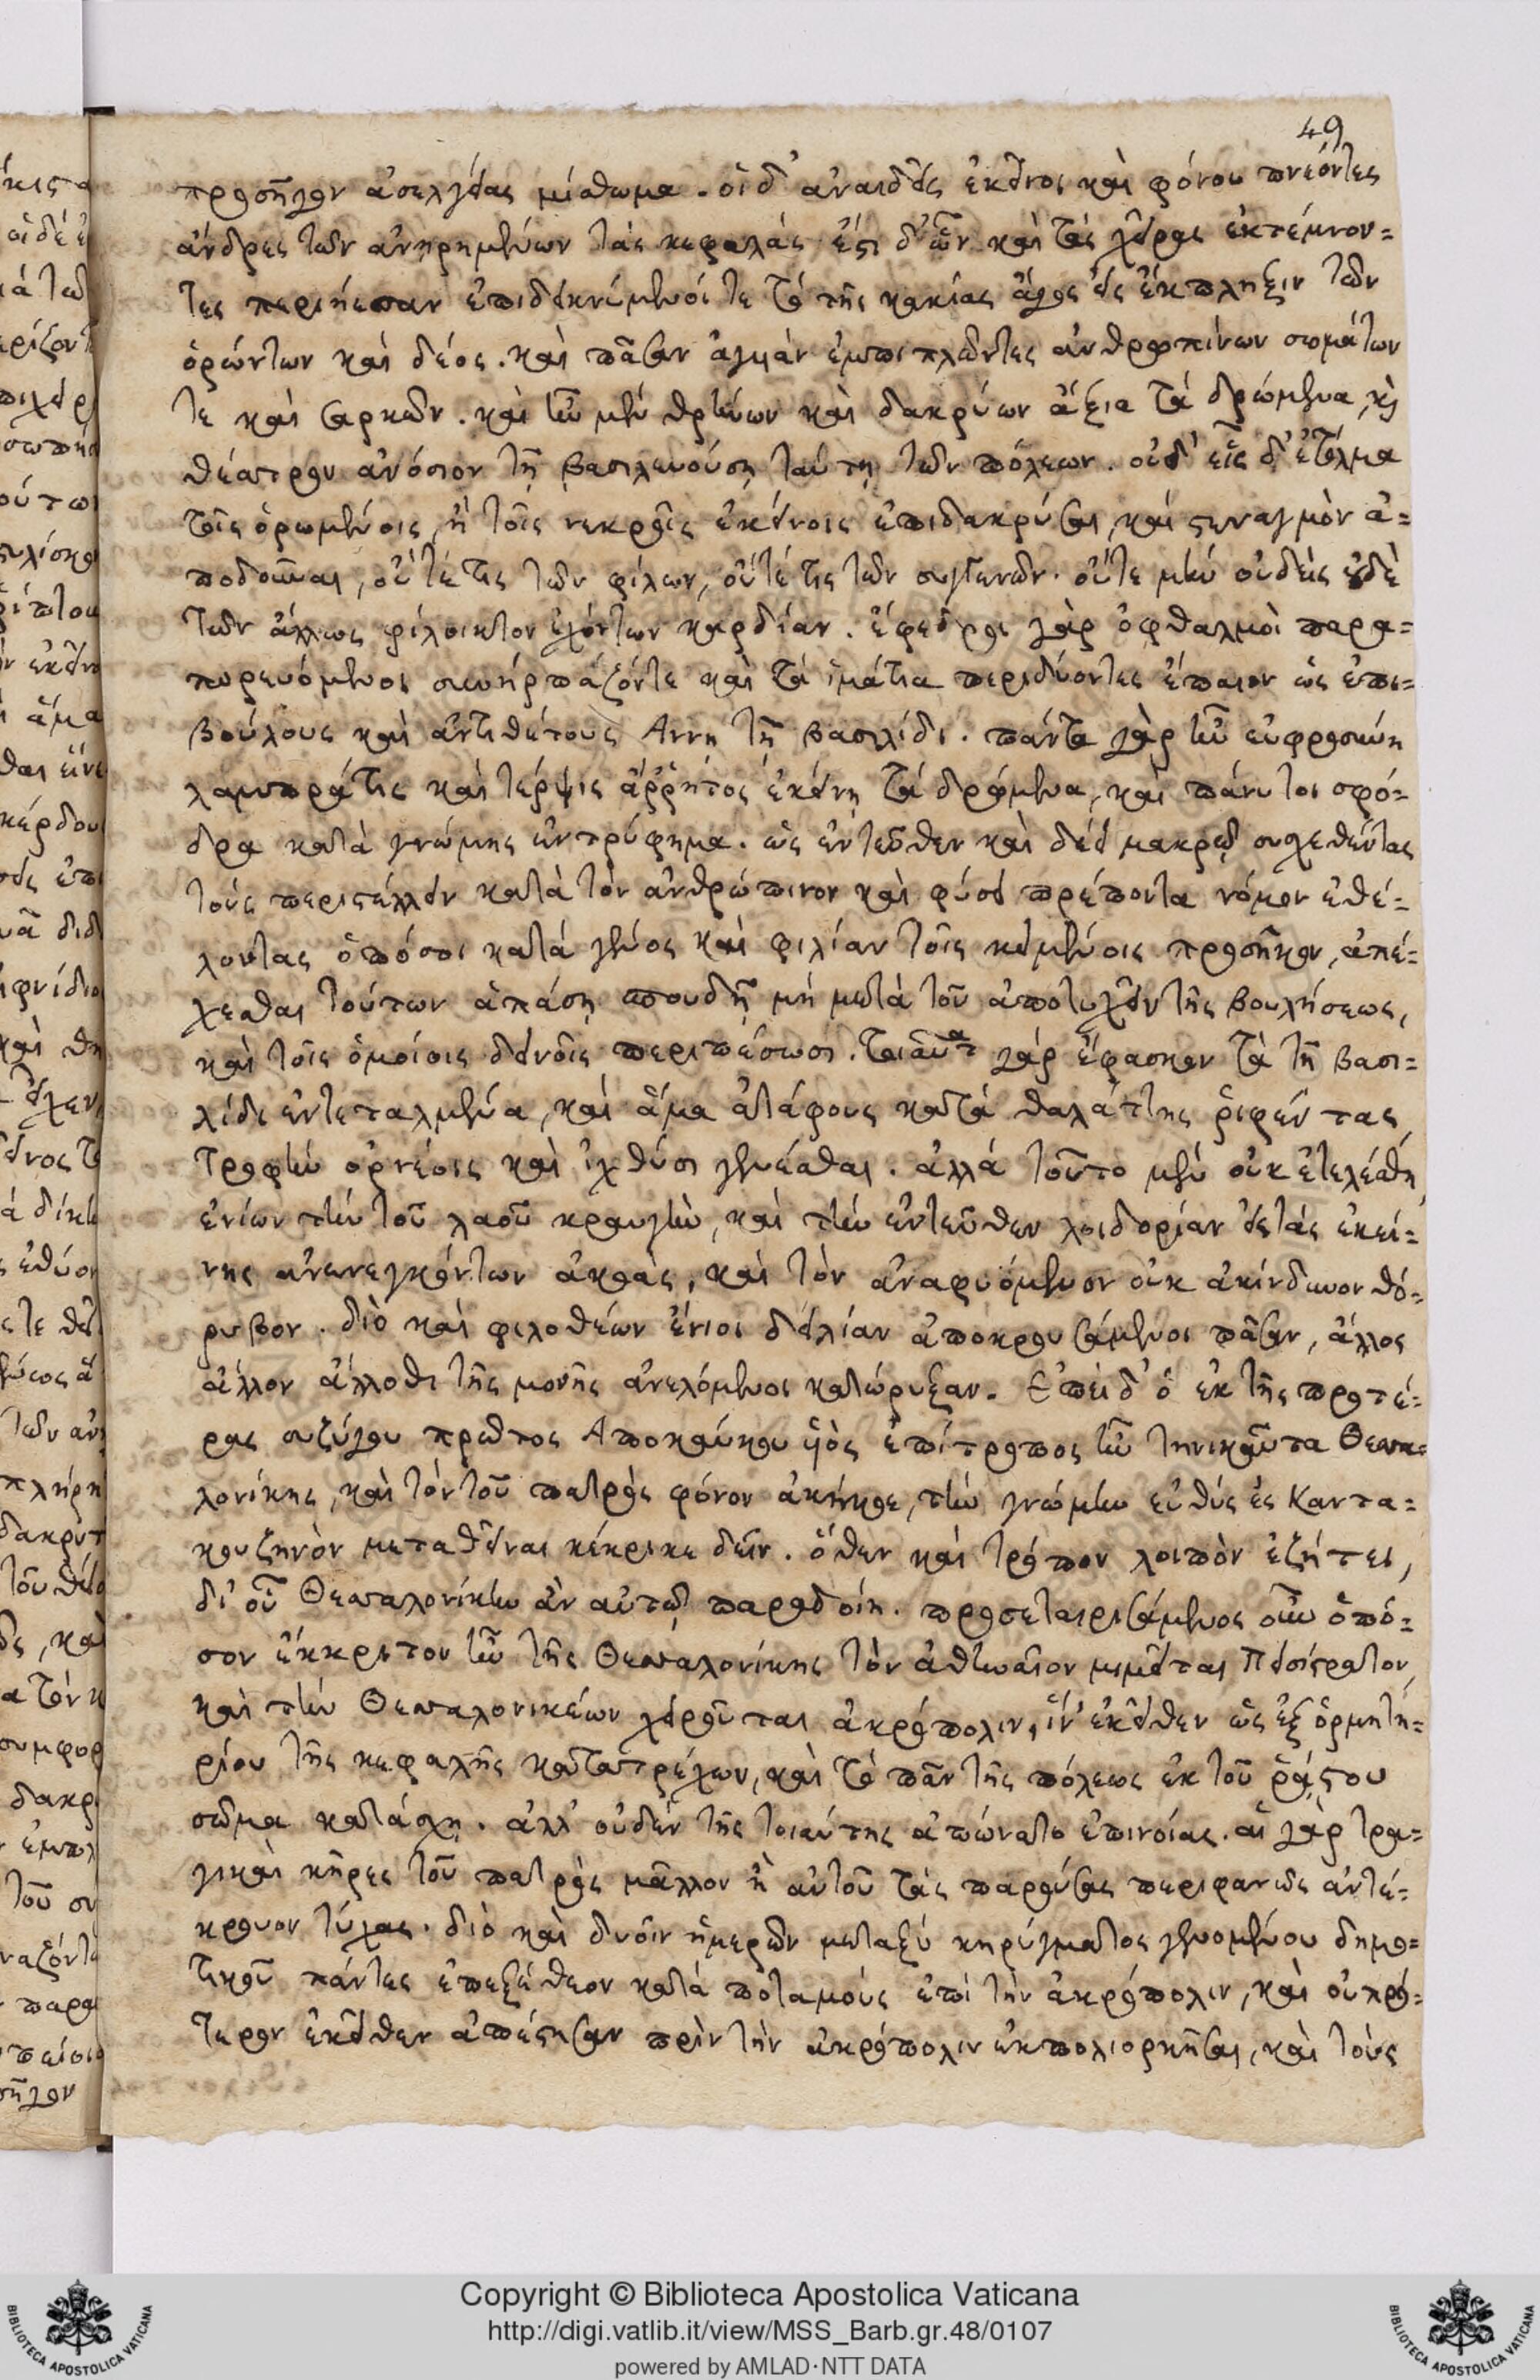 49
προσῆγον ἀσελγείας μίασμα. οἱ δ' ἀναιδεῖς ἐκεῖνοι καὶ φόνου πνεόντες
ἄνδρες τῶν ἀνῃρημένων τὰς κεφαλὰς ἔστι δ' ὧν καὶ τὰς χεῖρας ἐκτέμνον=
τες περιῄεσαν ἐπιδεικνύμενοί τε τὸ τῆς κακίας ἄγος εἰς ἔκπληξιν τῶν
ὁρώντων καὶ δέος. καὶ πᾶσαν ἀγυιὰν ἐμπιπλῶντες ἀνθρωπίνων σωμάτων
τε καὶ σαρκῶν. καὶ ἦν μὲν θρήνων καὶ δακρύων ἄξια τὰ δρώμενα, κ̀
θέατρον ἀνόσιον τῇ βασιλευούσῃ ταύτῃ τῶν πόλεων. οὐδ' εἷς δ' ἐτόλμα
τοῖς ὁρωμένοις, ἢ τοῖς νεκροῖς ἐκείνοις ἐπιδακρύσαι, καὶ στεναγμὸν ἀ=
ποδοῦναι, οὔτέ τις τῶν φίλων, οὔτέ τις τῶν συγγενῶν. οὔτε μὴν οὐδεὶς οὐδὲ
τῶν ἄλλως φίλοικτον ἐχόντων καρδίαν. ἔφεδροι γὰρ ὀφθαλμοὶ παρα=
πορευόμενοι συνήρπαζόν τε καὶ τὰ ἱμάτια περιδύοντες ἔπαιον ὡς ἐπι=
βούλους καὶ ἀντιθέτους Ἄννῃ τῇ βασιλίδι. πάντα γὰρ ἦν εὐφροσύνη
λαμπρά τις καὶ τέρψις ἄῤῥητος ἐκείνῃ τὰ δρώμενα, καὶ πάνυ τοι σφό=
δρα κατὰ γνώμης ἐντρύφημα. ὡς ἐντεῦθεν καὶ δέει μακρῷ συσχεθέντας
τοὺς περιστέλλειν κατὰ τὸν ἀνθρώπινον καὶ φύσει πρέποντα νόμον ἐθέ=
λοντας ὁπόσοι κατὰ γένος καὶ φιλίαν τοῖς κειμένοις προσῆκον, ἀπέ=
χεσθαι τούτων ἁπάσῃ σπουδῇ μὴ μετὰ τοῦ ἀποτυχεῖν τῆς βουλήσεως,
καὶ τοῖς ὁμοίοις δεινοῖς περιπέσωσι. τοιαῦτα γὰρ ἔφασκον τὰ τῇ βασι=
λίδι ἐντεταλμένα, καὶ ἅμα ἀτάφους κατὰ θαλάττης ῥιφέντας,
τροφὴν ὀρνέοις καὶ ἰχθύσι γενέσθαι. ἀλλὰ τοῦτο μὲν οὐκ ἐτελέσθη,
ἐνίων τὴν τοῦ λαοῦ κραυγὴν, καὶ τὴν ἐντεῦθεν λοιδορίαν εἰς τὰς ἐκεί=
νης ἀνενεγκόντων ἀκοὰς, καὶ τὸν ἀναφυόμενον οὐκ ἀκίνδυνον θό=
ρυβον. διὸ καὶ φιλοθέων ἔνιοι δειλίαν ἀποκρουσάμενοι πᾶσαν, ἄλλος
ἄλλον ἄλλοθι τῆς μονῆς ἀνελόμενοι κατώρυξαν. Ἐπεὶ δ' ὁ ἐκ τῆς προτέ=
ρας συζύγου πρῶτος Ἀποκαύκου ὑὸς ἐπίτροπος ὢν τηνικαῦτα Θεσσα=
λονίκης, καὶ τὸν τοῦ πατρὸς φόνον ἀκήκοε, τὴν γνώμην εὐθὺς ἐς Καντα=
κουζηνὸν μεταθεῖναι κέκρικε δεῖν. ὅθεν καὶ τρόπον λοιπὸν ἐζήτει,
δι' οὗ Θεσσαλονίκην ἂν αὐτῷ παραδοίη. προσεταιρισάμενος οὖν ὁπό=
σον ἔκκριτον ἦν τῆς Θεσσαλονίκης τὸν ἀθηναῖον μιμεῖται Πεισίστρατον,
καὶ τὴν Θεσσαλονικέων χειροῦται ἀκρόπολιν, ἵν' ἐκεῖθεν ὡς ἐξ ὁρμητη=
ρίου τῆς κεφαλῆς κατατρέχων, καὶ τὸ πᾶν τῆς πόλεως ἐκ τοῦ ῥᾴστου
σῶμα κατάσχῃ. ἀλλ' οὐδὲν τῆς τοιαύτης ἀπώνατο ἐπινοίας. αἱ γὰρ τρα=
γικαὶ κῆρες τοῦ πατρὸς μᾶλλον ἢ αὐτοῦ τὰς παρούσας περιφανῶς ἀντέ=
κρουον τύχας. διὸ καὶ δυοῖν ἡμερῶν μεταξὺ κηρύγματος γενομένου δημο=
τικοῦ πάντες ἐπεξέθεον κατὰ ποταμοὺς ἐπὶ τὴν ἀκρόπολιν, καὶ οὐ πρό=
τερον ἐκεῖθεν ἀπέστησαν πρὶν τὴν ἀκρόπολιν ἐκπολιορκῆσαι, καὶ τοὺς
Copyright © Biblioteca Apostolica Vaticana
http://digi.vatlib.it/view/MSS_Barb.gr.48/0107
powered by AMLAD·NTT DATA
BIBLIOTECA APOSTOLICA VATICANA
BIBLIOTECA APOSTOLICA VATICANA